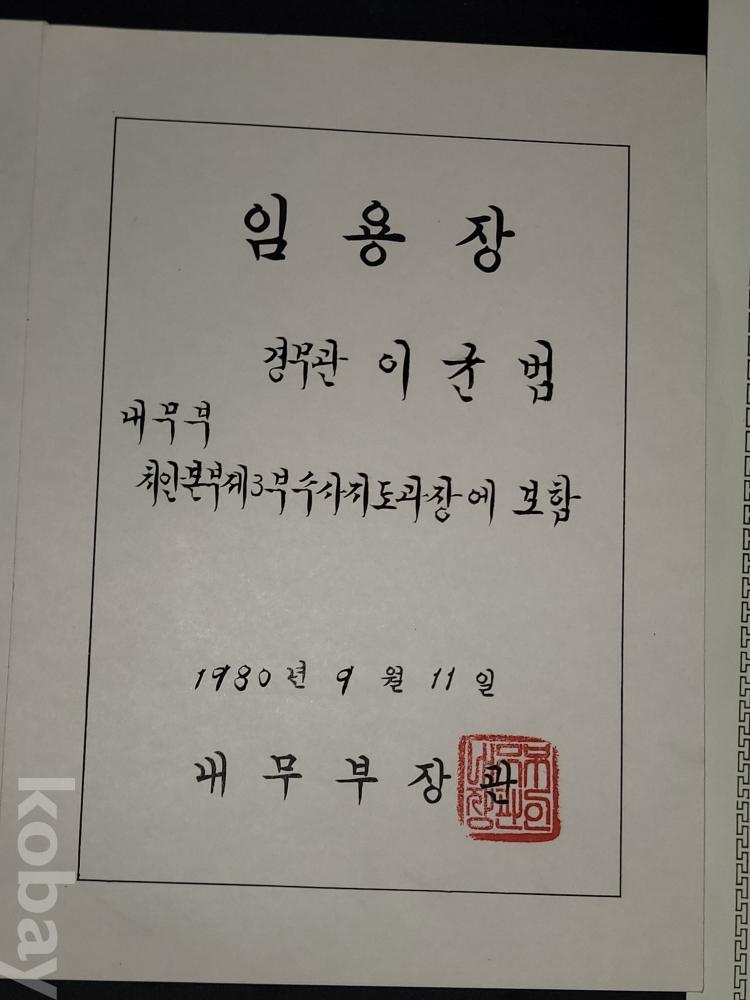 임 용 장
경무관 이 균 범
내 무 부
치안본부제3부수사지도과장에 보함
1980 년 9 월 11 일
내 무 부 장 관
kobay